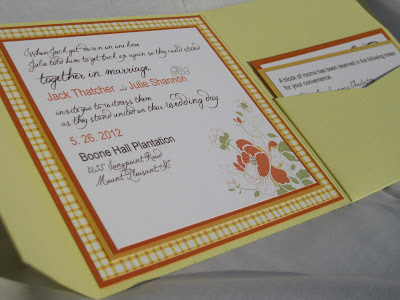 When Jack got down on one knee
Julie told him to get back up again so they could stand
together in marriage.
Jack Thatcher and Julie Shannon
invite you to witness them
as they stand united on their wedding day
5. 26. 2012
Boone Hall Plantation
1235 Longpoint Road
Mount Pleasant, SC
A block of rooms has been reserved in the following hotels
for your convenience.